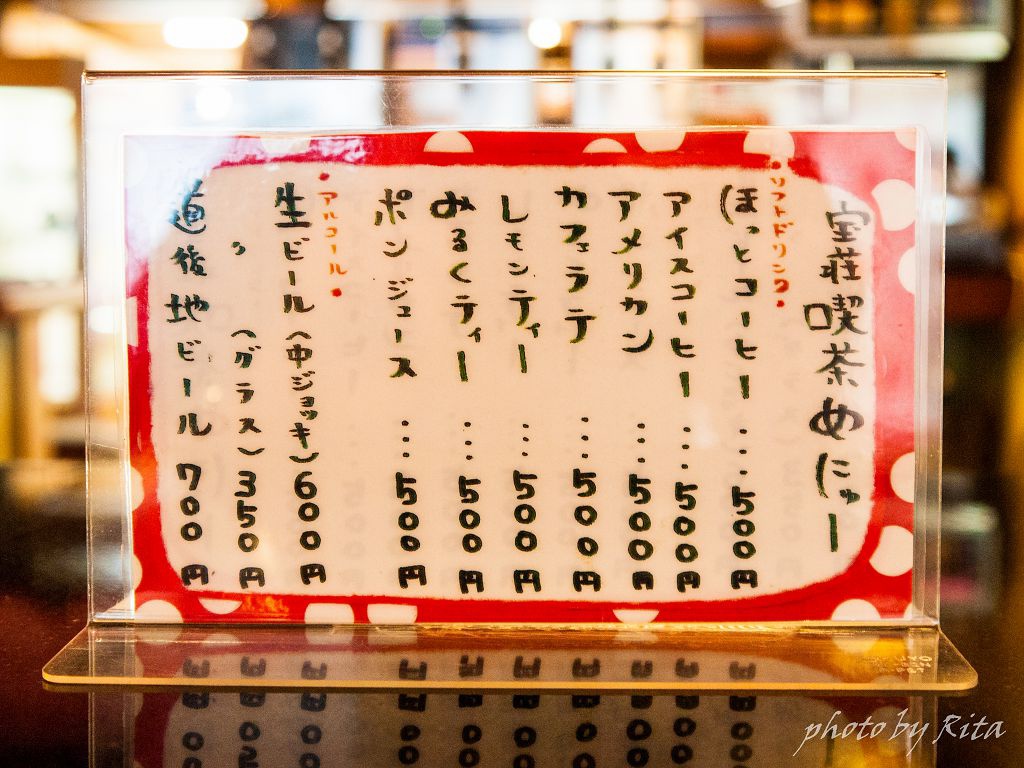 宝荘喫茶めにゅー
・ソフトドリンク・
ほっとコーヒー ・・・・ 500円
アイスコーヒー ・・・ 500円
アメリカン ・・・ 500円
カフェラテ ・・・ 500円
レモンティー ・・・ 500円
みるくティー ・・・ 500円
ポンジュース ・・・ 500円
・アルコール・
生ビール(中ジョッキ) 600円
〃 (グラス) 350円
道後地ビール 700円
photo by Rita